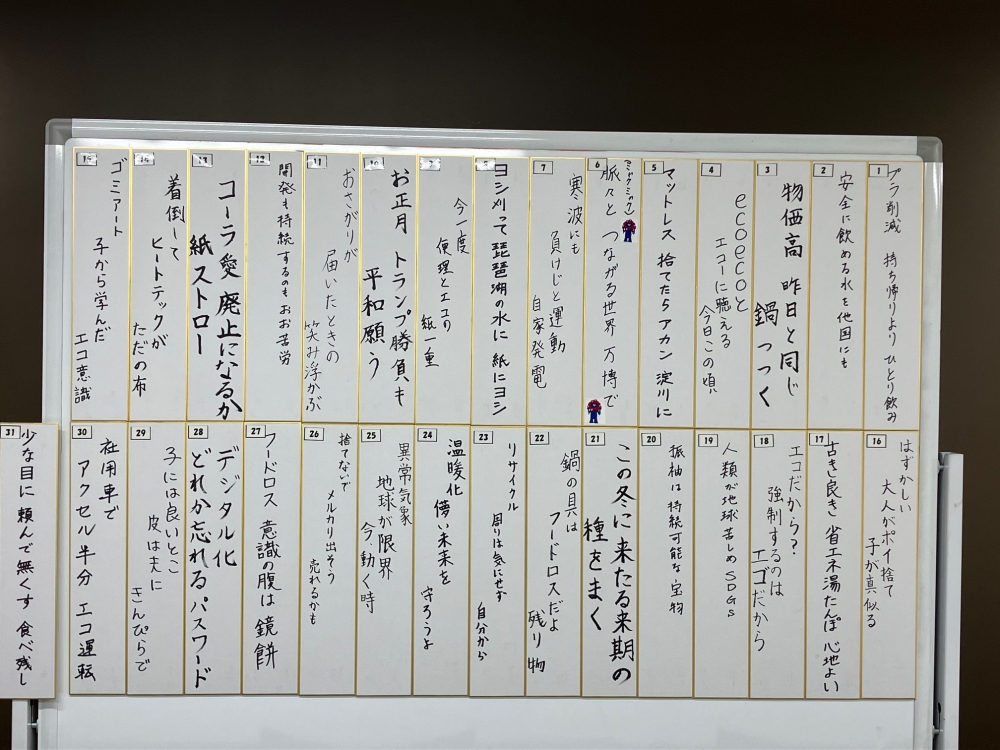 1
プラ削減 持ち帰りより ひとり飲み
2
安全に飲める水を他国にも
3
物価高 昨日と同じ
鍋つつく
4
ecoecoと
エコーに聴える
今日この頃
5
マットレス 捨てたらアカン 淀川に
6
(ミャクミャク)
脈々と つながる世界 万博で
7
寒波にも
負けじと運動
自家発電
8
ヨシ刈って 琵琶湖の水に 紙にヨシ
9
今一度
便理とエコの
紙一重
10
お正月 トランプ勝負も
平和願う
11
おさがりが
届いたときの
笑み浮かぶ
12
開発も持続するのもお苦労
13
コーラ愛 廃止になるか
紙ストロー
14
着倒して
ヒートテックが
ただの布
15
ゴミアート
子から学んだ
エコ意識
16
はずかしい
大人がポイ捨て
子が真似る
17
古き良き 省エネ湯たんぽ 心地よい
18
エコだから?
強制するのは
エゴだから
19
人類が地球苦しめSDGs
20
振袖は持続可能な宝物
21
この冬に来たる来期の
種をまく
22
鍋の具は
フードロスだよ
残り物
23
リサイクル
周りは気にせず
自分から
24
温暖化 儚い未来を 守ろうよ
25
異常気象
地球が限界
今、動く時
26
捨てないで
メルカリ出そう
売れるかも
27
フードロス 意識の腹は 鏡餅
28
デジタル化
どれか忘れる パスワード
29
子には良いとこ
皮は夫に
きんぴらで
30
社用車で
アクセル半分 エコ運転
31
少な目に頼んで無くす 食べ残し